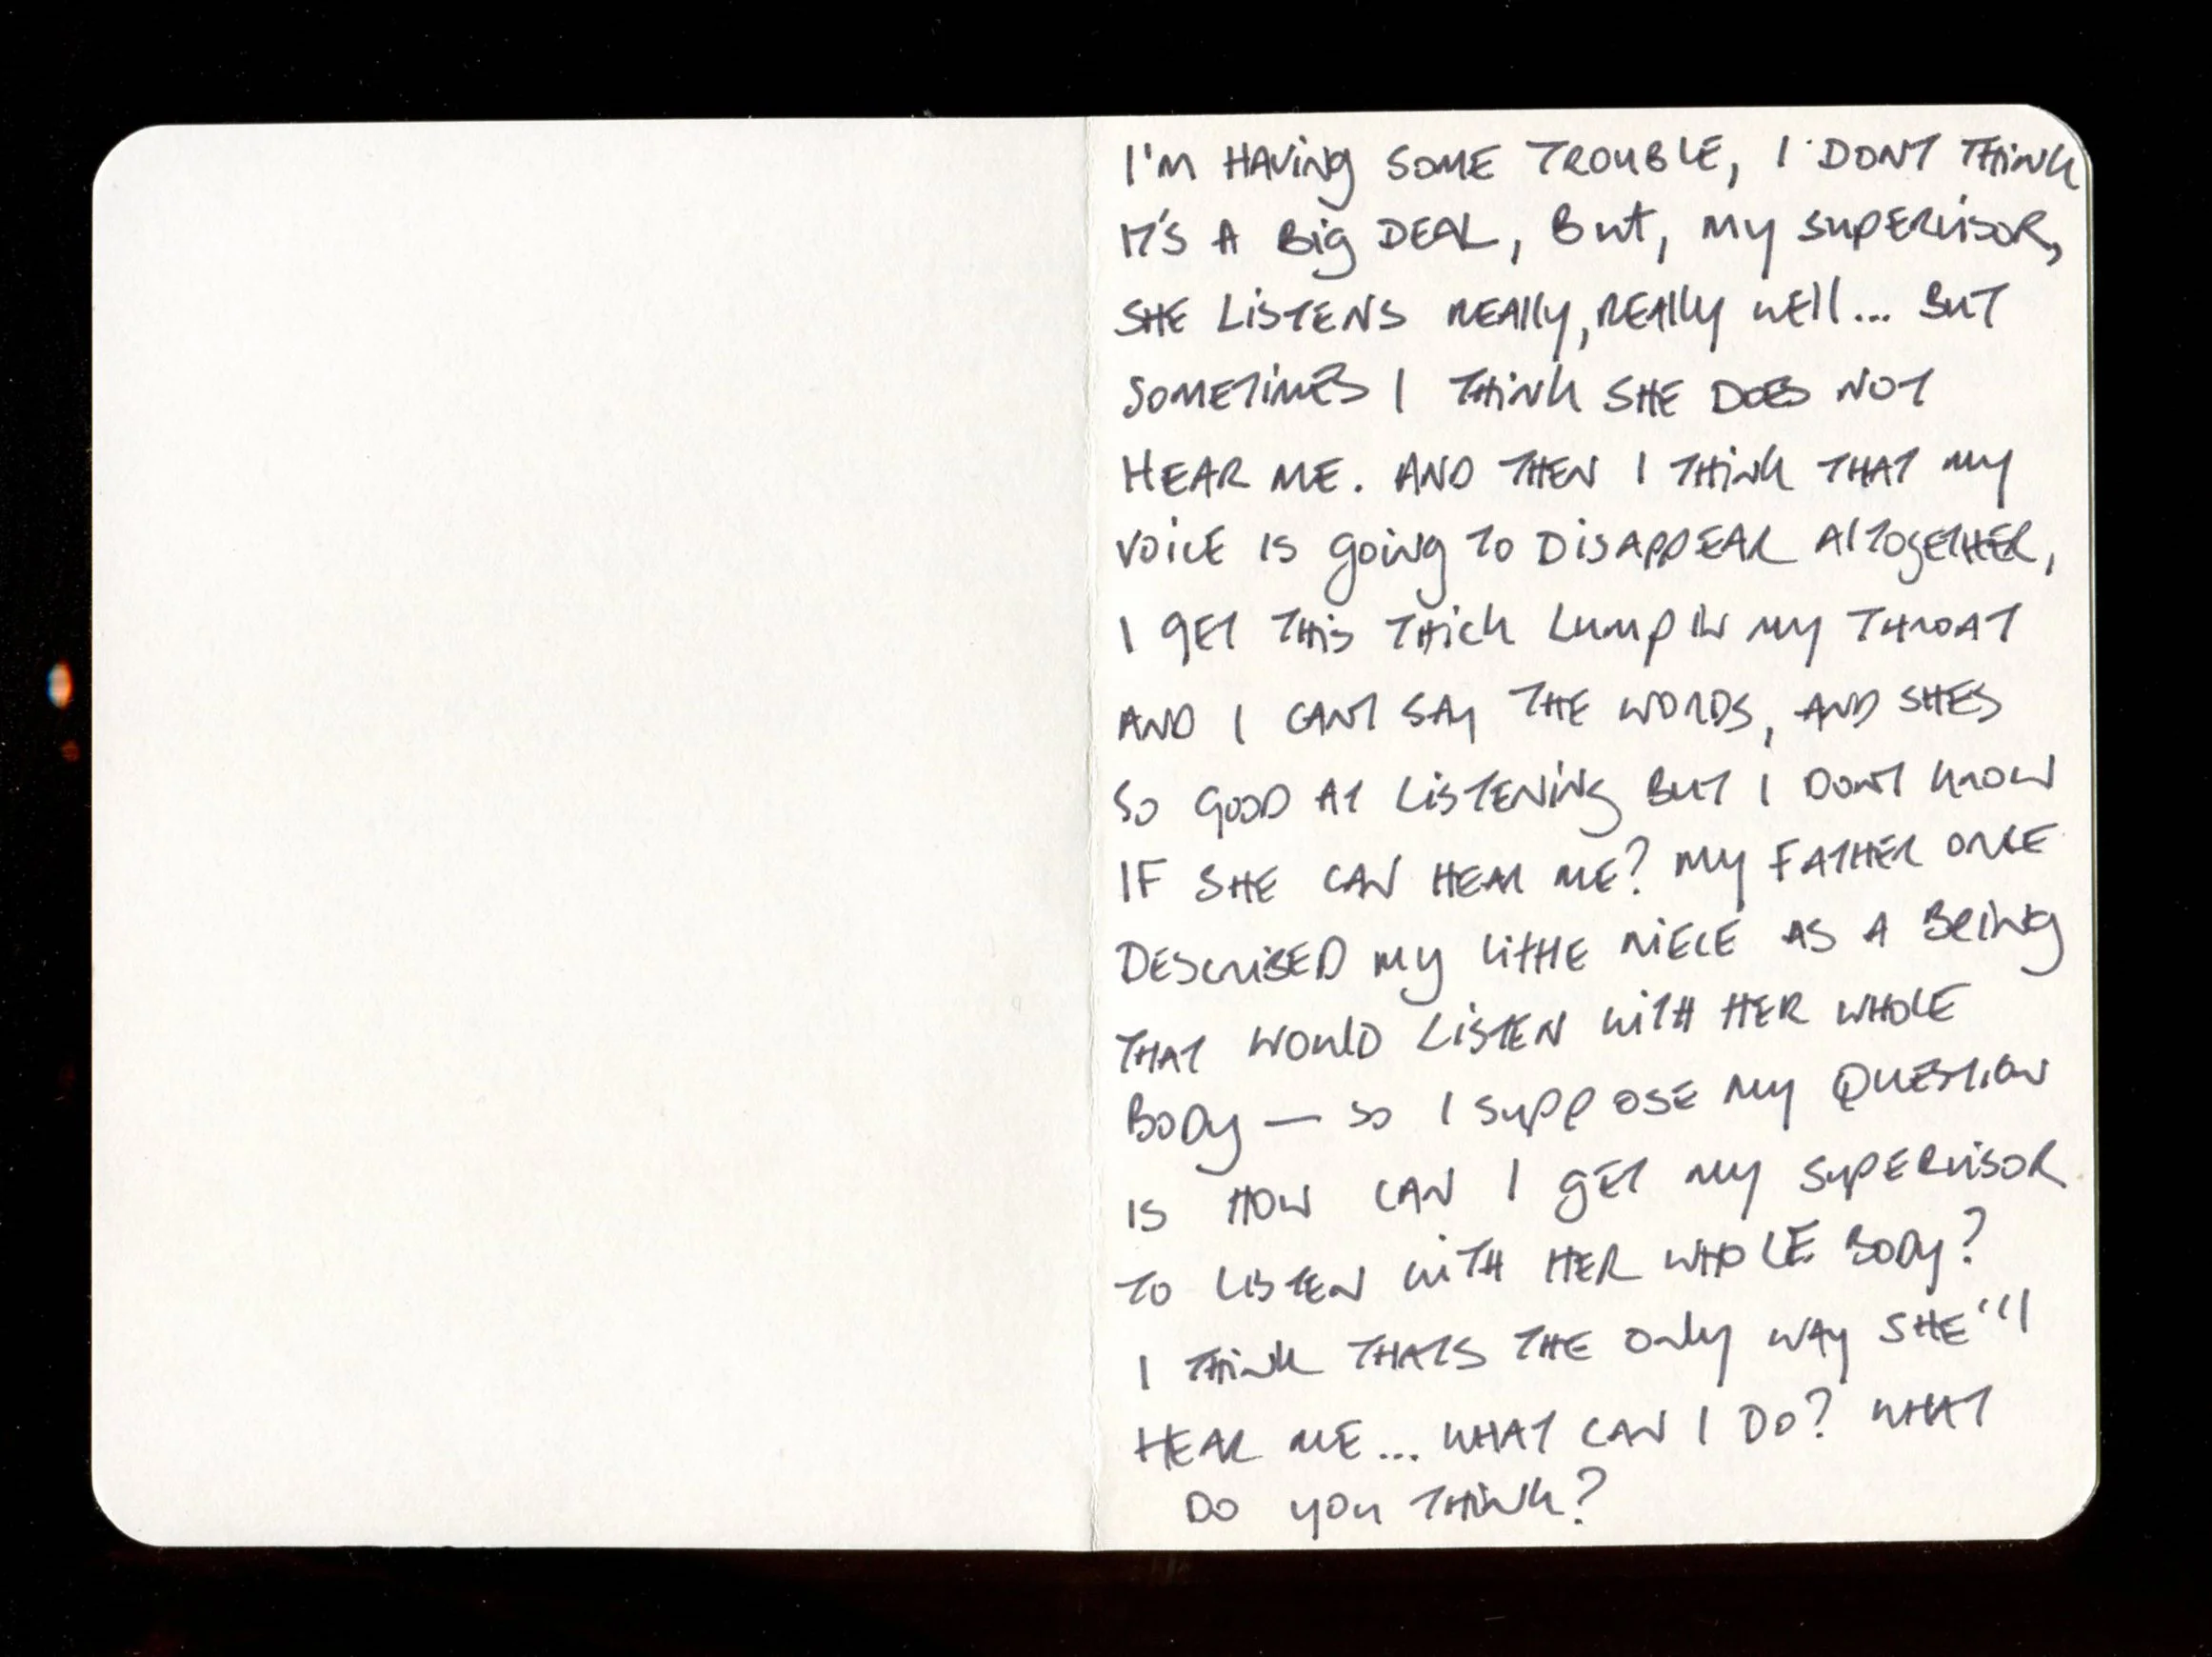 I'M HAVING SOME TROUBLE, I DONT THINK
IT'S A BIG DEAL, BUT, MY SUPERVISOR,
SHE LISTENS REALLY, REALLY WELL... BUT
SOMETIMES I THINK SHE DOES NOT
HEAR ME. AND THEN I THINK THAT MY
VOICE IS GOING TO DISAPPEAR ALTOGETHER,
I GET THIS THICK LUMP IN MY THROAT
AND I CANT SAY THE WORDS, AND SHES
SO GOOD AT LISTENING BUT I DONT KNOW
IF SHE CAN HEAR ME? MY FATHER ONCE
DESCRIBED MY LITTLE NIECE AS A BEING
THAT WOULD LISTEN WITH HER WHOLE
BODY — SO I SUPPOSE MY QUESTION
IS HOW CAN I GET MY SUPERVISOR
TO LISTEN WITH HER WHOLE BODY?
I THINK THATS THE ONLY WAY SHE'LL
HEAR ME... WHAT CAN I DO? WHAT
DO YOU THINK?